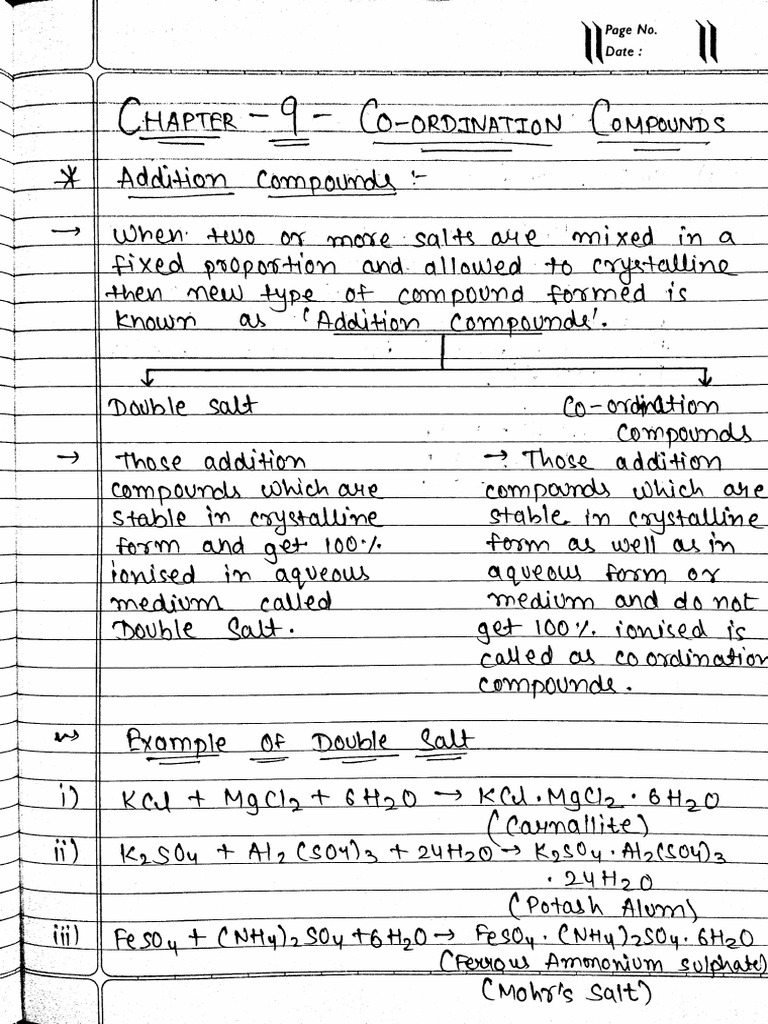 Page No.
Date :
CHAPTER - 9 - CO-ORDINATION COMPOUNDS
* Addition Compounds :-
→ When two or more salts are mixed in a
fixed proportion and allowed to crystalline
then new type of compound formed is
known as 'Addition Compounds'.
Double salt
→ Those addition
compounds which are
stable in crystalline
form and get 100%
ionised in aqueous
medium called
Double Salt.
Co-ordination
compounds
→ Those addition
compounds which are
stable in crystalline
form as well as in
aqueous form or
medium and do not
get 100% ionised is
called as coordination
compounds.
Example Of Double Salt
i) KCl + MgCl2 + 6H2O → KCl·MgCl2·6H2O
(Carnallite)
ii) K2SO4 + Al2(SO4)3 + 24H2O → K2SO4·Al2(SO4)3
·24H2O
(Potash Alum)
iii) FeSO4 + (NH4)2SO4 + 6H2O → FeSO4·(NH4)2SO4·6H2O
(Ferrous Ammonium sulphate)
(Mohr's Salt)